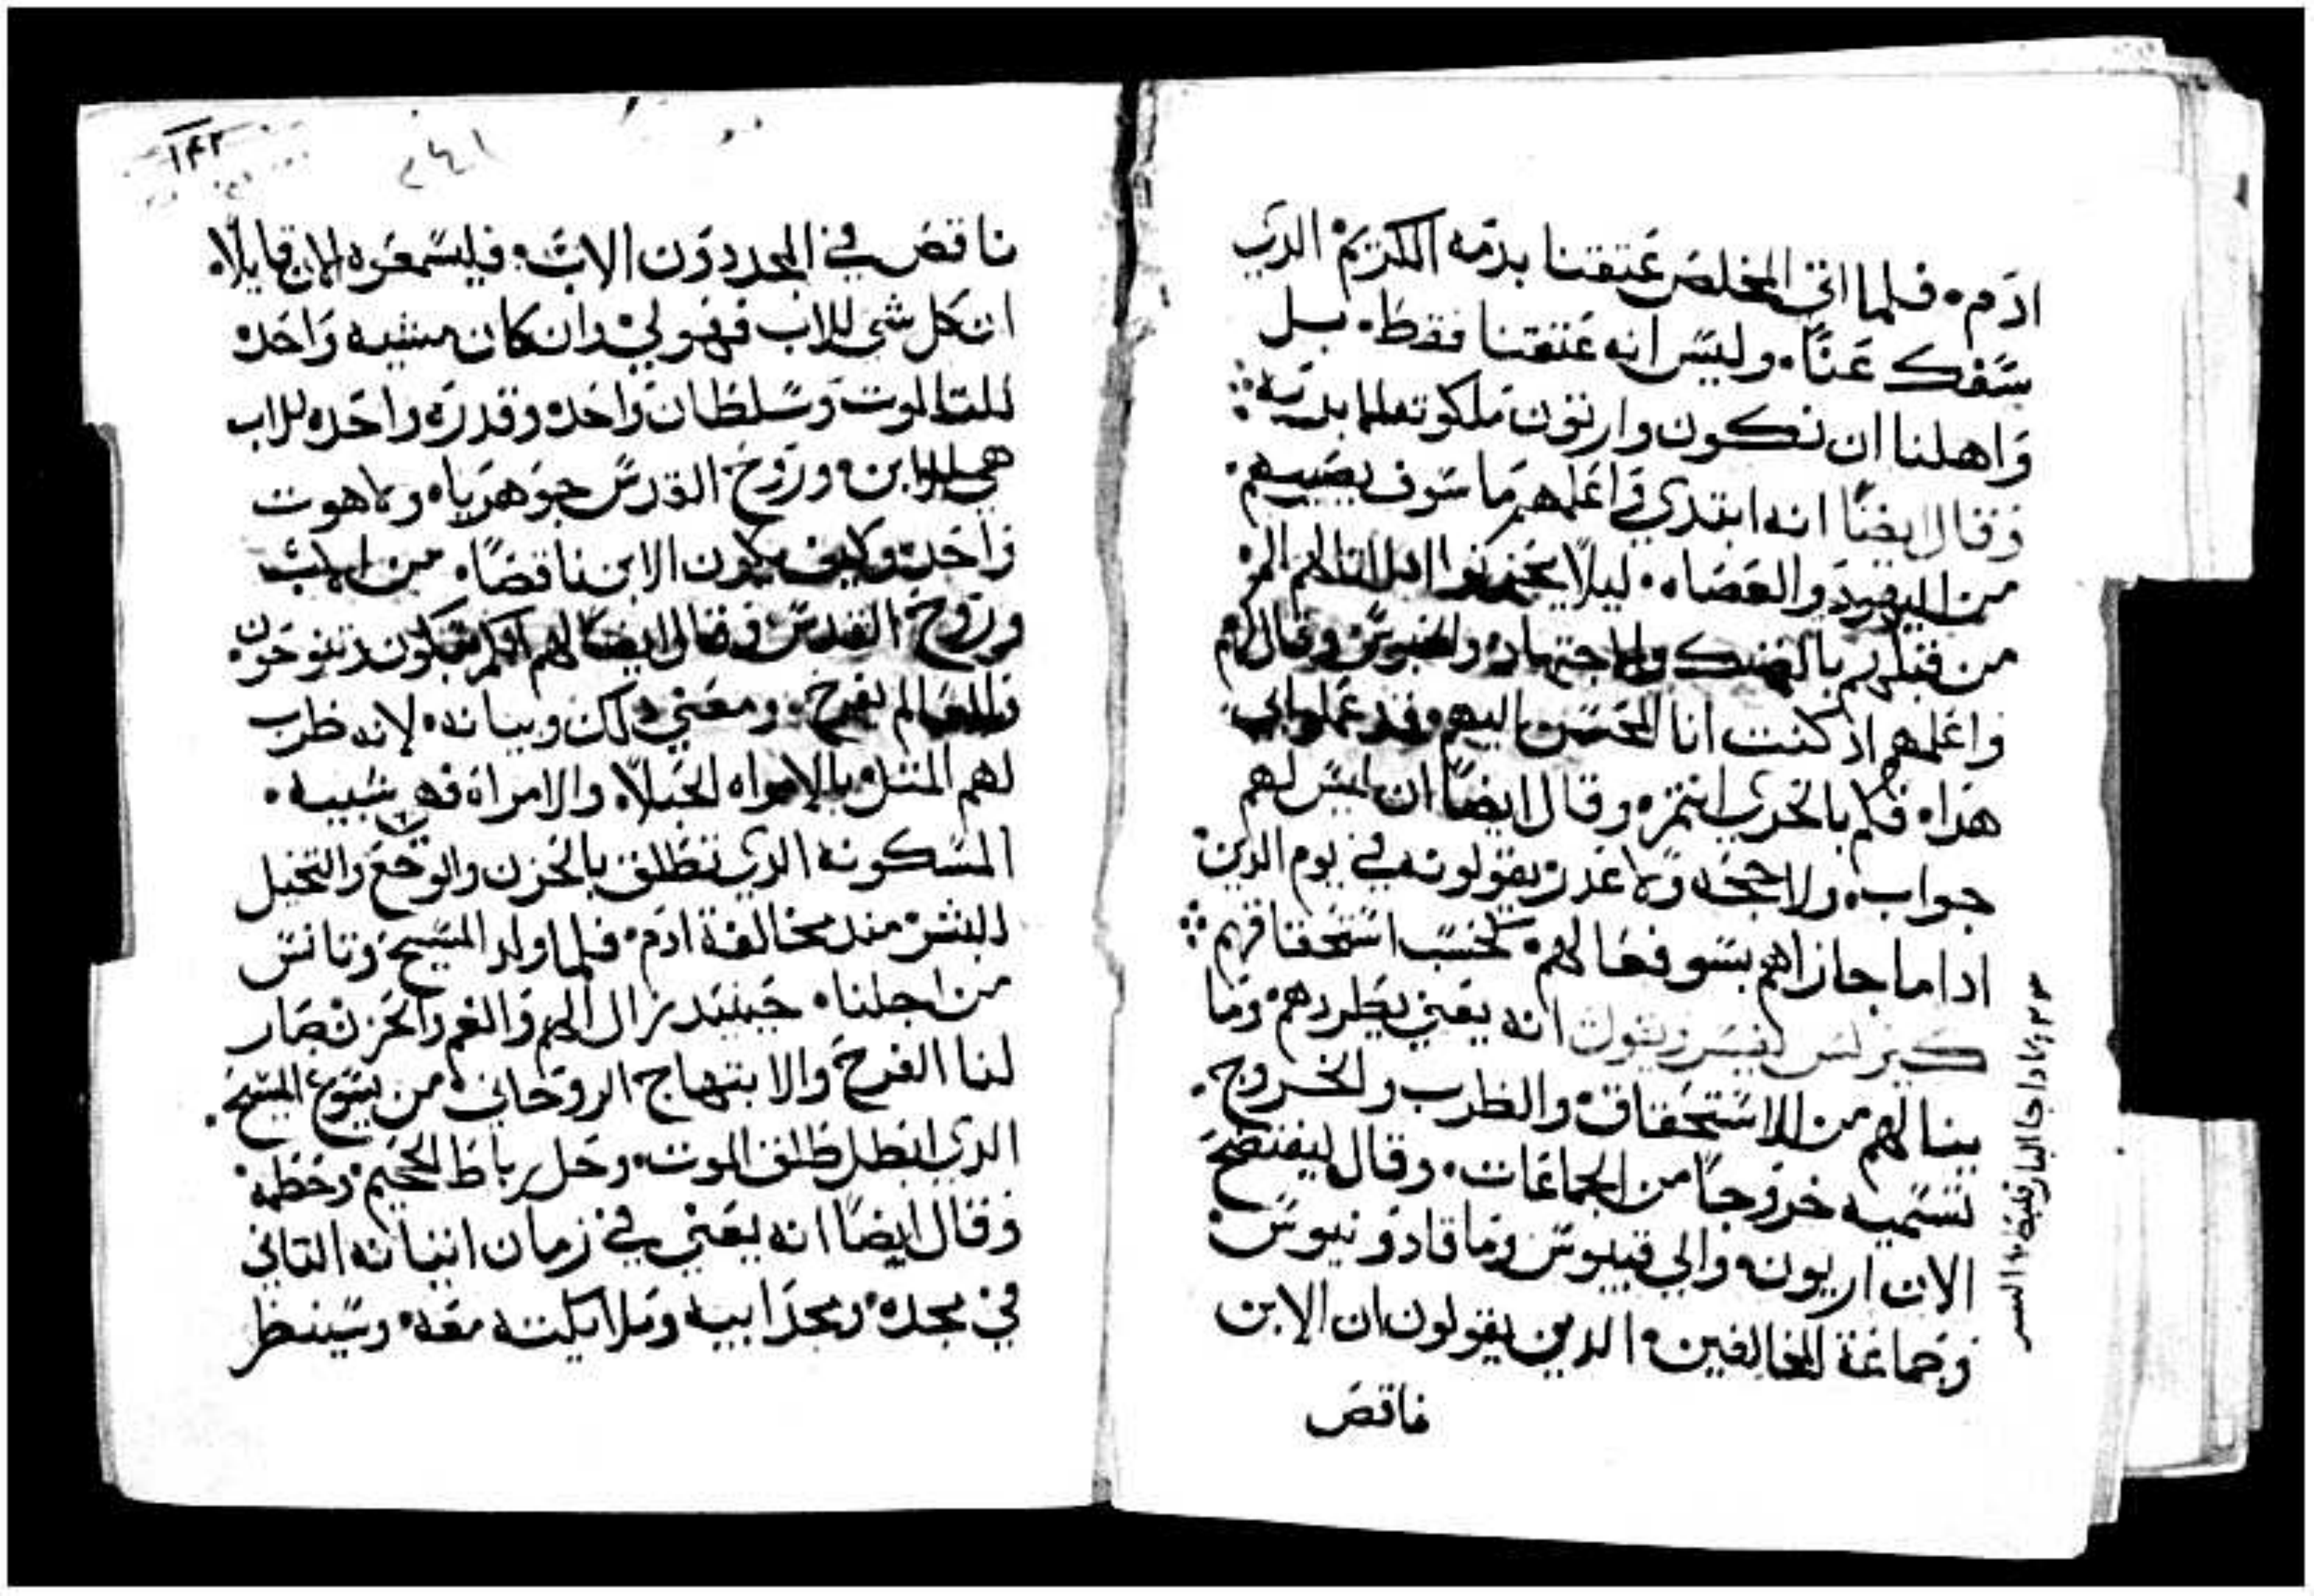 ادم. فلما اتى المخلص عتقنا بدمه الكريم الدي
سفك عنا. وليس انه عتقنا فقط. بل
واهلنا ان نكون وارتون ملكوته
وقال ايضا انه ابتدي واعلمهم ما سوف يصيبهم.
من اليهود والعصاه. ليلا
من قبلهم والاجتهاد وقال لهم
واعلمهم اد كنت انا المحسن اليهم وقد عملوا بي
هدا. فكم بالحري انتم. وقال ايضا ان ليس لهم
جواب. ولا حجه ولا عدر يقولونه في يوم الدين
ادا ما جازاهم بسو فعالهم. كحسب استحقاقهم
كيرلس يفسر ويقول انه يعني بطردهم وما
ينالهم من الاستحقاق والظرب والخروج.
تسميه خروجا من الجماعات. وقال ليفتضح
الان اريونه والي
وجماعة المخالفين الدين يقولون ان الابن
ناقص
١٤٢
ناقص في المجد دون الاب. فليسمعوه الان قايلا.
ان كل شي للاب فهو لي وان كان مشيه واحده
للتالوت وسلطان واحد وقدره واحده للاب
هي للابن. وروح القدس جوهريا. ولاهوت
واحد وكيف يكون الابن ناقصا. من الاب
وروح القدس وقال ايضا لهم انكم تبكون وتنوحون
والعالم يفرح. ومعني دلك وبيانه. لانه ظرب
لهم المتل بالامراه الحبلا. والامراة فهي شبيه.
المسكونه الدي تطلق بالحزن والوجع والتخيل
للبشر مند مخالفة ادم. فلما ولد المسيح وتانس
من اجلنا. حينيد زال الهم والغم والحزن وصار
لنا الفرح والابتهاج الروحاني من يسوع المسيح.
الدي ابطل طلق الموت. وحل رباط الجحيم وحطمه
وقال ايضا انه يعني في زمان اتيانه التاني
في مجده ومجد ابيه وملايكته معه. وسينظر